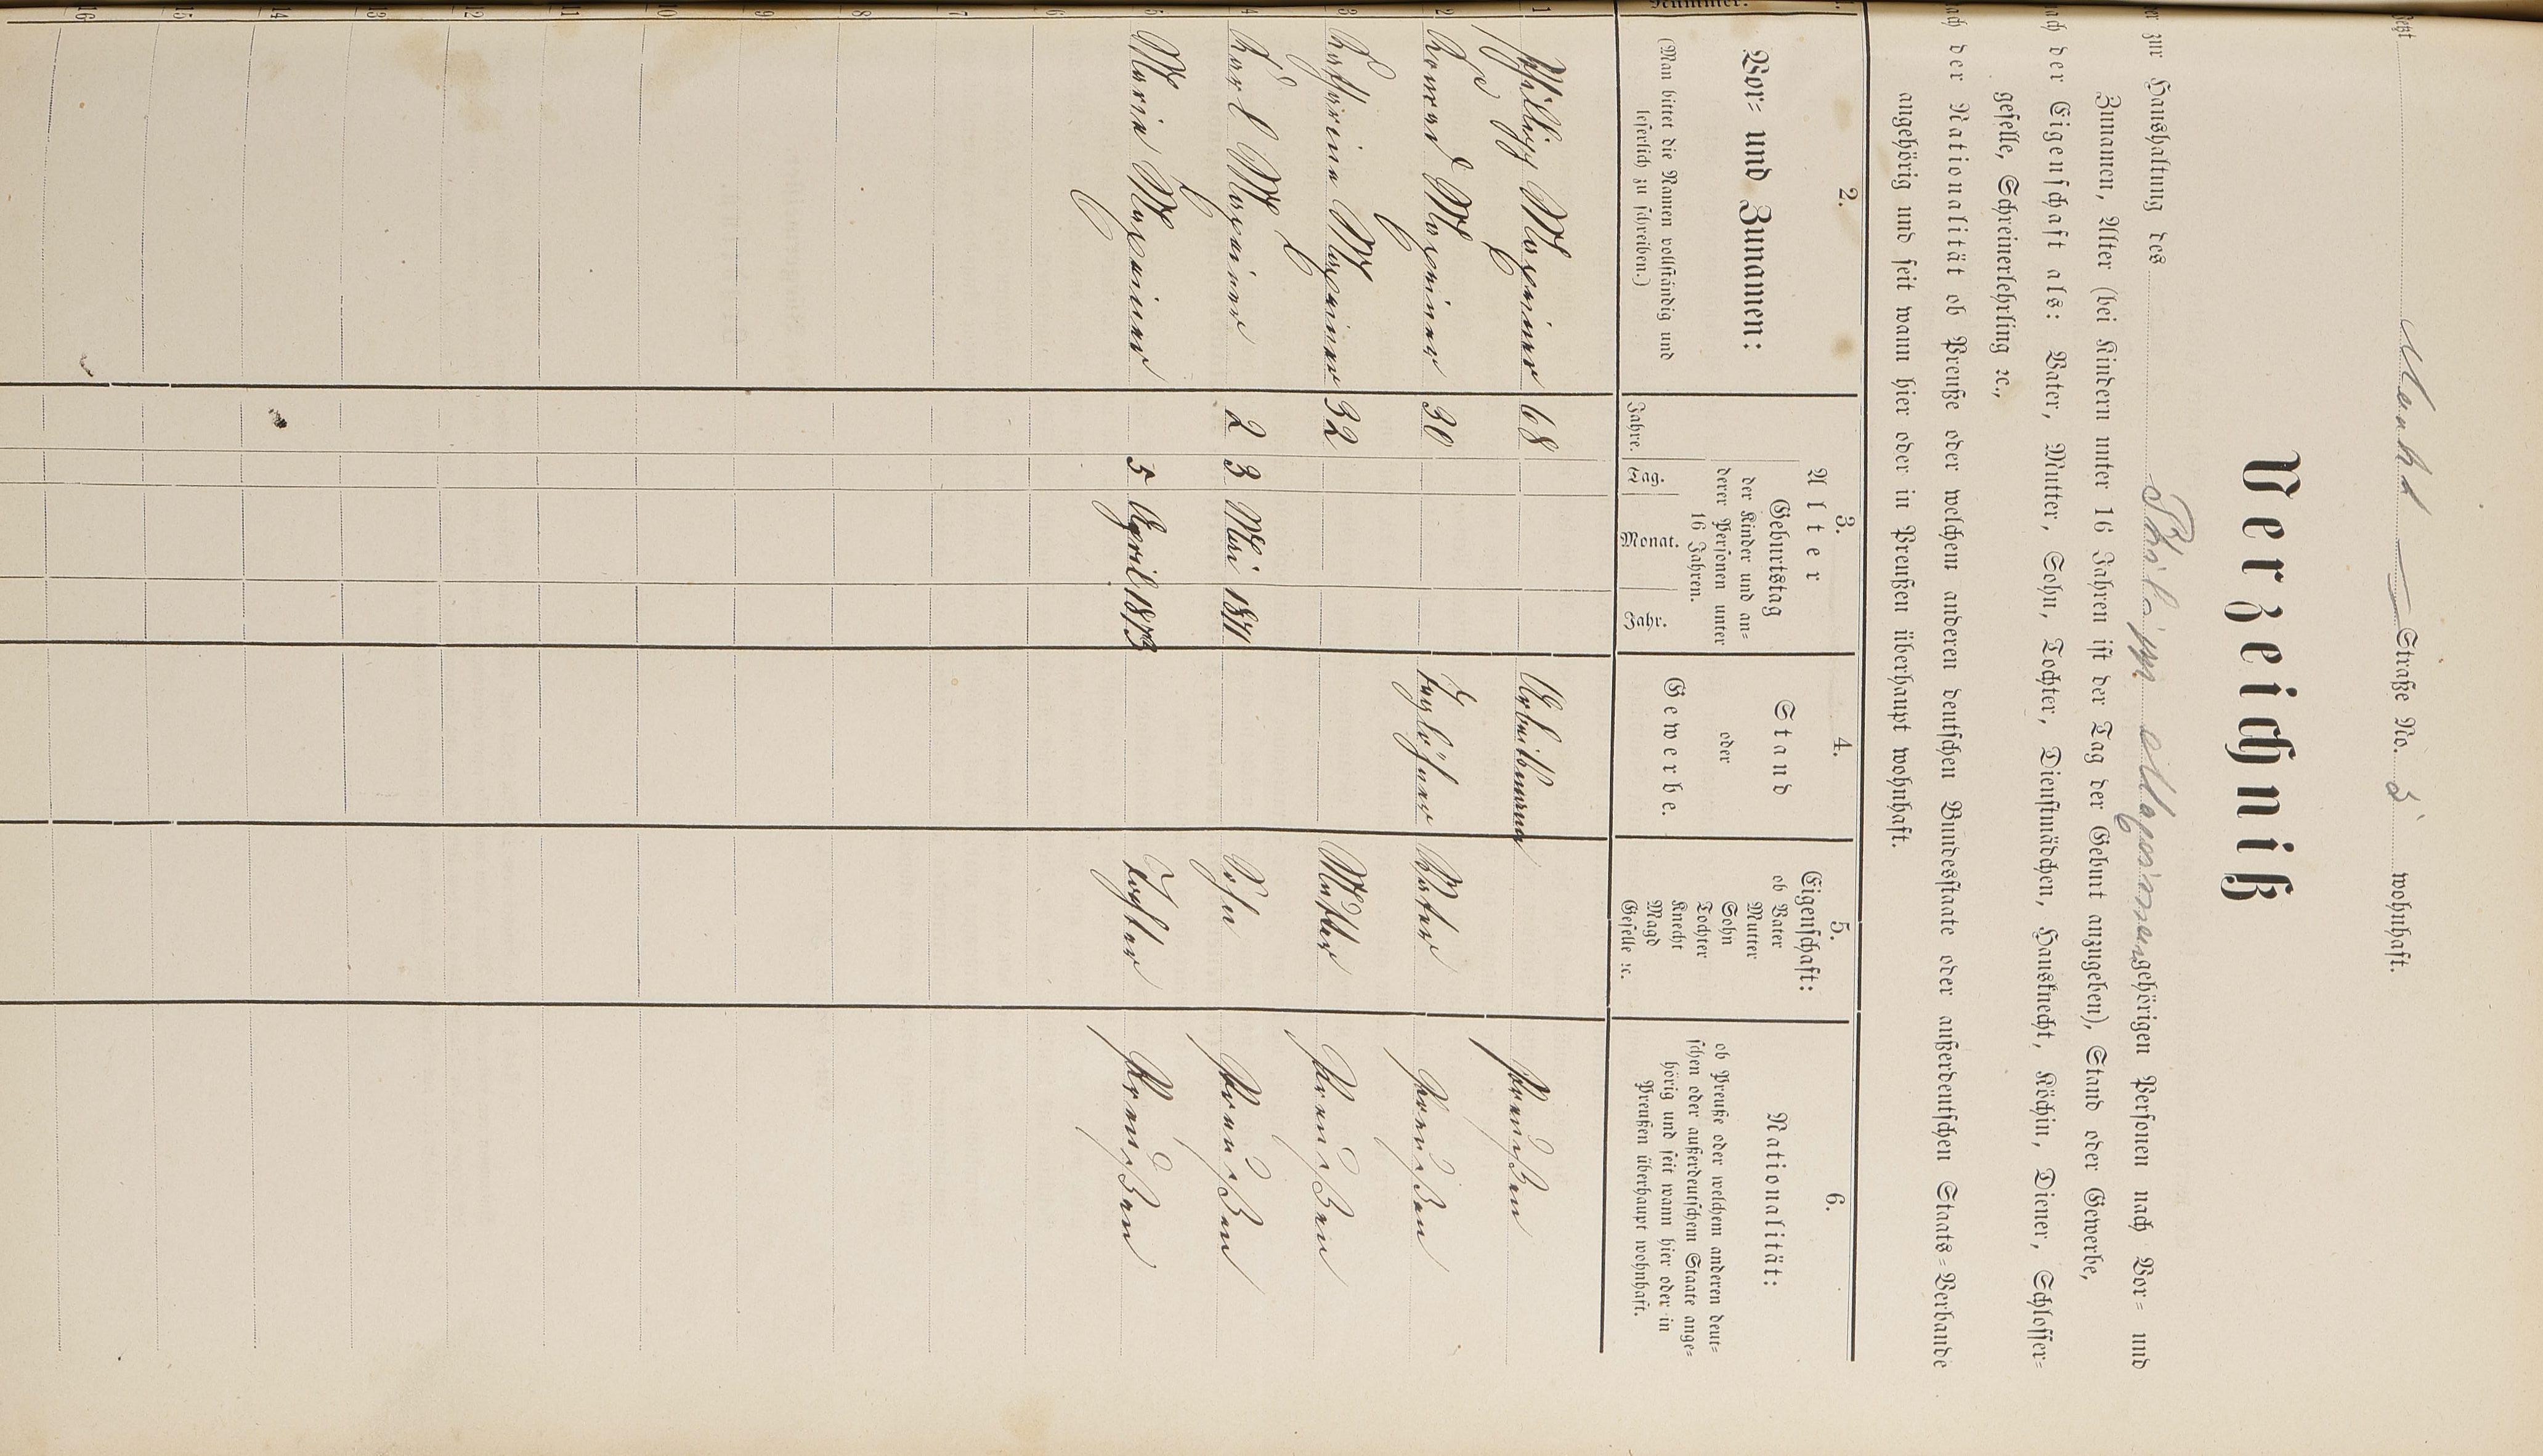 Jetzt Markt Straße No. 3 wohnhaft.
Verzeichniß
er zur Haushaltung des Philipp angehörigen Personen nach Vor- und
Zunamen, Alter (bei Kindern unter 16 Jahren ist der Tag der Geburt anzugeben), Stand oder Gewerbe,
ach der Eigenschaft als: Vater, Mutter, Sohn, Tochter, Dienstmädchen, Hausknecht, Köchin, Diener, Schlosser-
geselle, Schreinerlehrling ꝛc.,
ach der Nationalität ob Preuße oder welchem anderen deutschen Bundesstaate oder außerdeutschen Staats-Verbande
angehörig und seit wann hier oder in Preußen überhaupt wohnhaft.
Nummer.
2.
Vor- und Zunamen:
(Man bittet die Namen vollständig und
leserlich zu schreiben.)
3.
Alter
Jahre.
Geburtstag
der Kinder und an-
derer Personen unter
16 Jahren.
Tag. Monat. Jahr.
4.
Stand
oder
Gewerbe.
5.
Eigenschaft:
ob Vater
Mutter
Sohn
Tochter
Knecht
Magd
Geselle ꝛc.
6.
Nationalität:
ob Preuße oder welchem anderen deut-
schen oder außerdeutschem Staate ange-
hörig und seit wann hier oder in
Preußen überhaupt wohnhaft.
1 Philipp 68 Preußen
2 Konrad 30 Taglöhner Vater Preußen
3 Katharina 32 Mutter Preußen
4 Karl 2 3 Mai 1871 Sohn Preußen
5 Maria 5 April 1873 Tochter Preußen
6
7
8
9
10
11
12
13
14
15
16